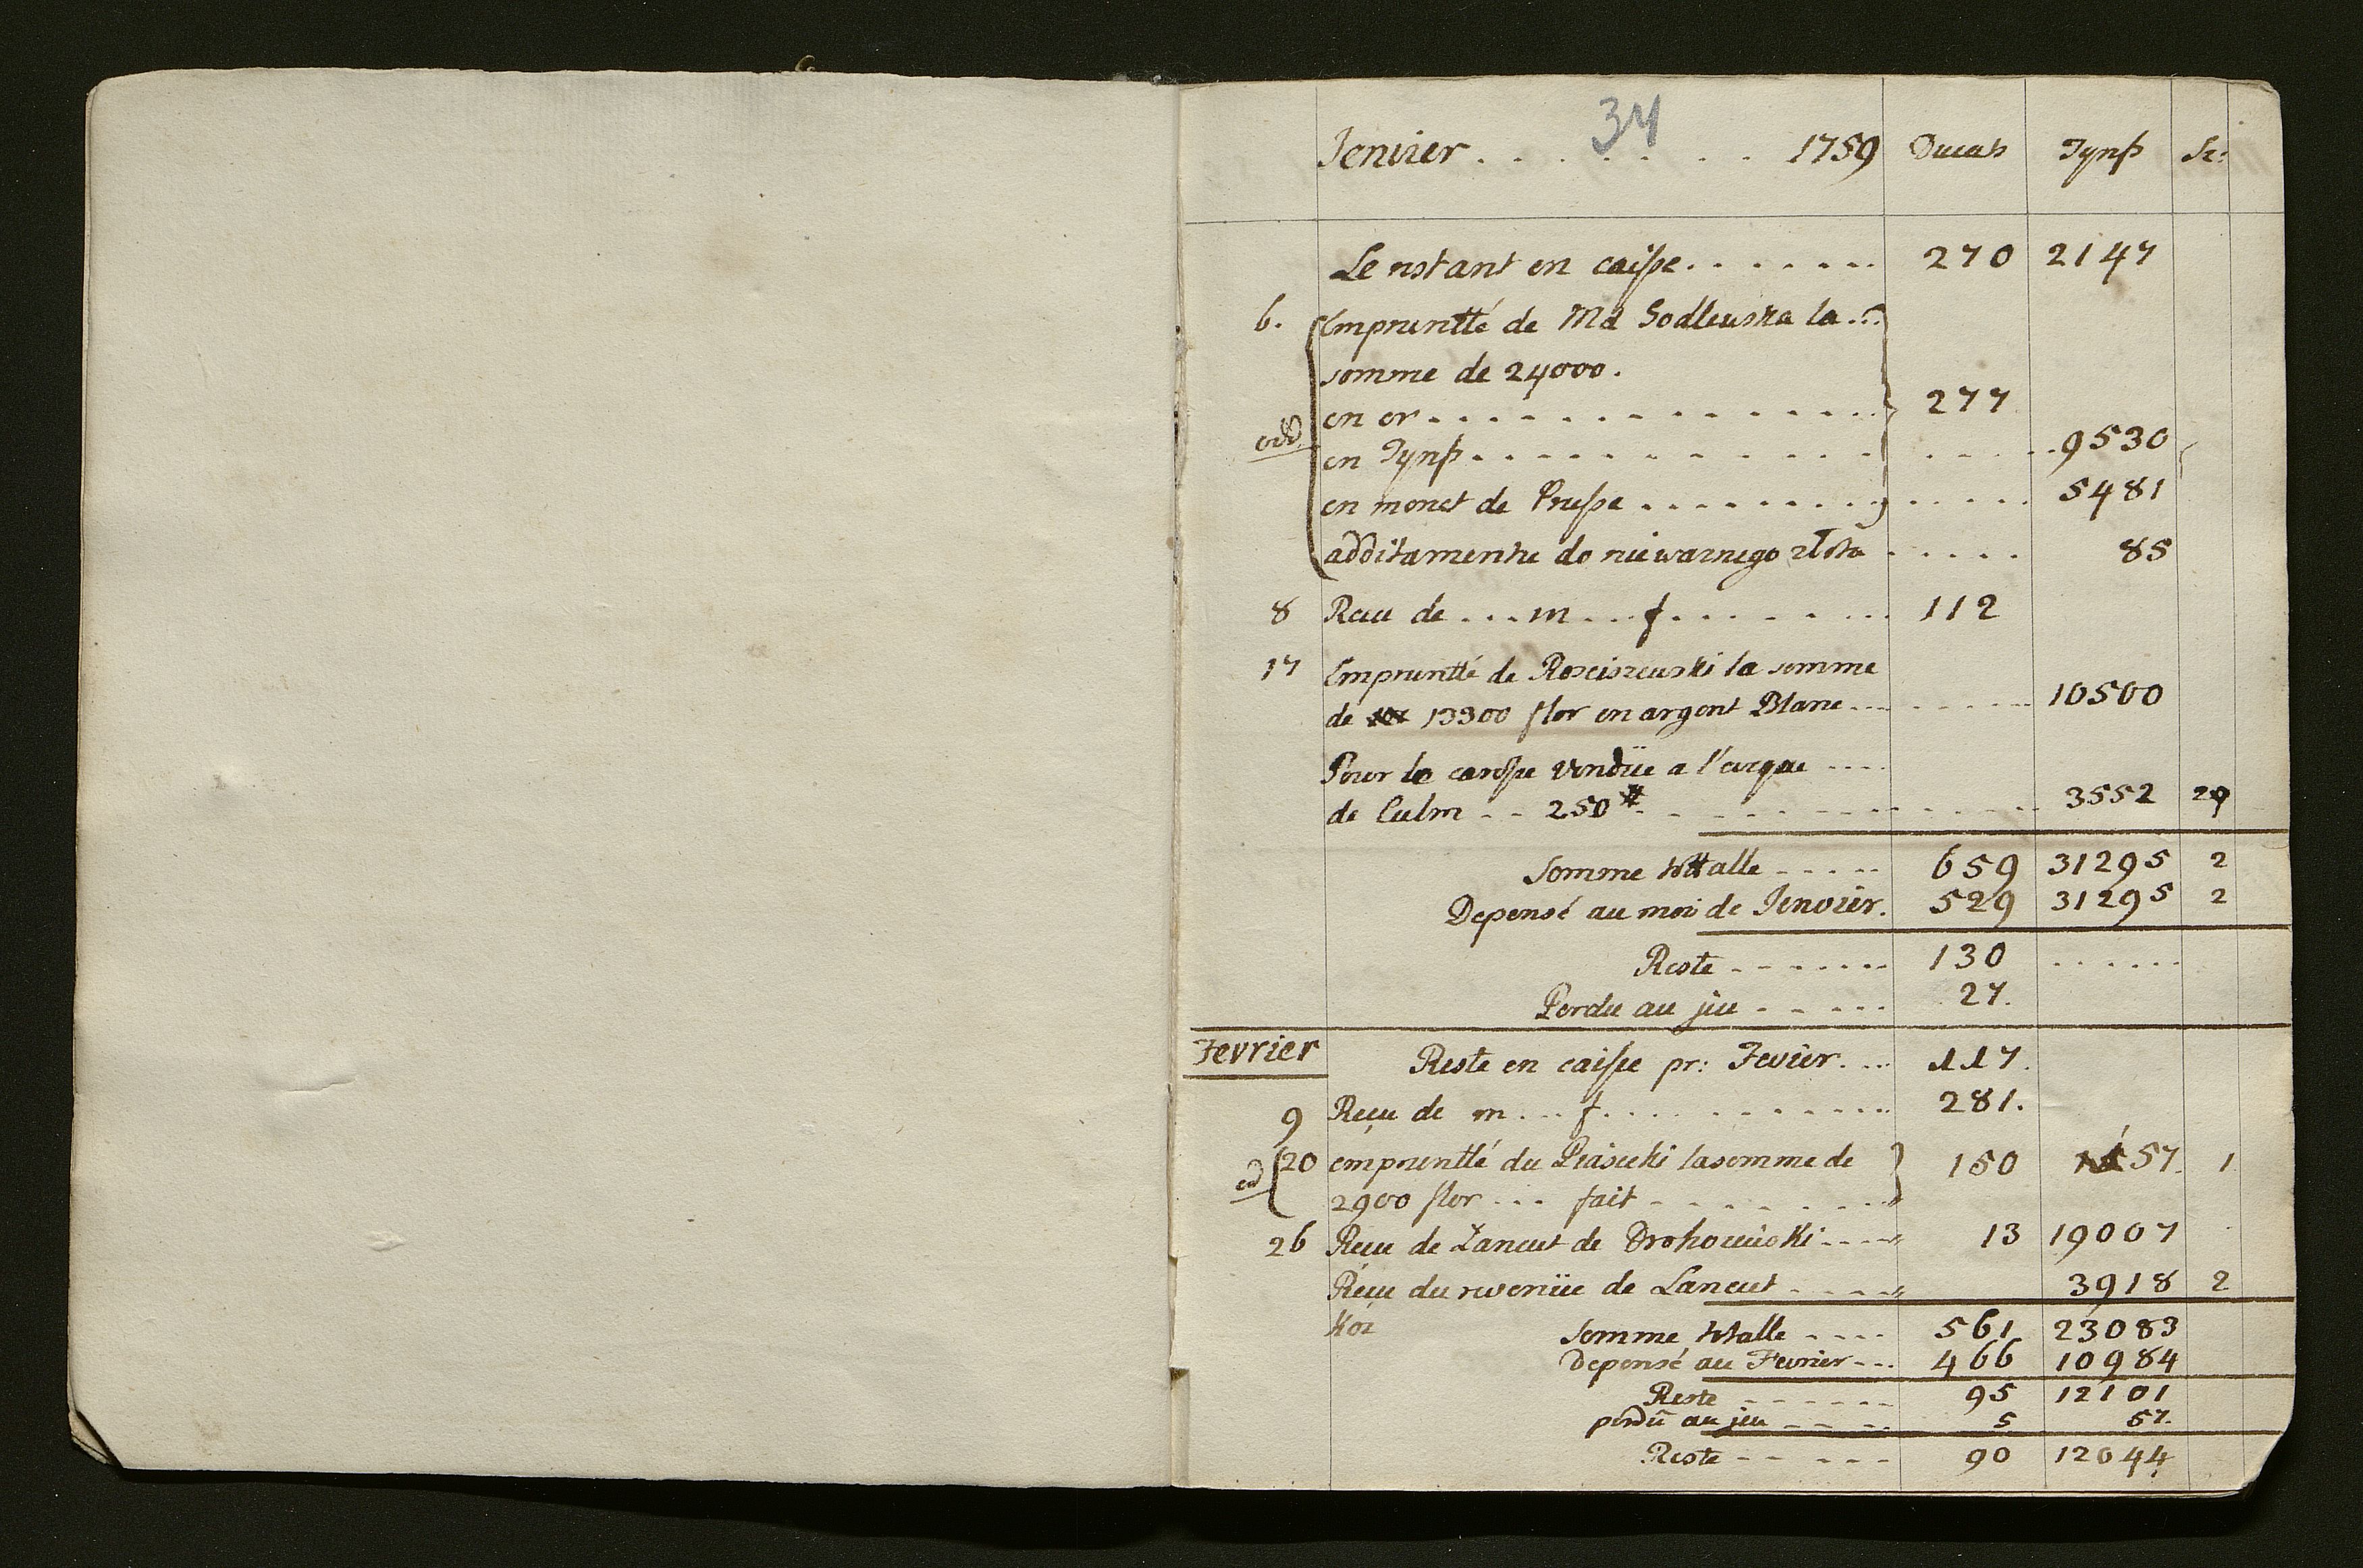 34
Jenvier . . . . . . . 1759 Ducats Tynfs Sz:
Le restant en caisse. . . . . . . 270 2147
6. Empruntté de Md Godlewska la ...
somme de 24000.
en or . . . . . . . . . . . . 277
en Tynfs . . . . . . . . . . . . 9530
en monet de Prusse . . . . . . . . . 5481
additamentu do niewaznego złota . . . . . 85
8 Recu de . . . m . . . f . . . . . . . 112
17 Empruntté de Rosciszewski la somme
de 13300 flor en argent Blanc . . . . . 10500
Pour le carosse vendüe a l'eveque ....
de Culm . . 250# . . . . . . . . . 3552 29
Somme tottalle . . . . . 659 31295 2
Depensé au moi de Jenvier. 529 31295 2
Reste . . . . . . . 130 . . . . . .
Perdu au jeu . . . . . 27.
Fevrier
Reste en caisse pr: Fevier. ... 117.
9 Reçu de m . . . f . . . . . . . . . 281.
20 empruntté du Piasecki la somme de 150 157 1
2900 flor . . . fait . . . . . . .
26 Reçu de Łancut de Drohoiewski . . . . 13 19007
Reçu du revenüe de Lancut . . . . . 3918 2
Somme totalle . . . . 561 23083
Depensé au Fevrier . . . 466 10984
Reste . . . . . . 95 12101
perdü au jeu . . . . . 5 57.
Reste . . . . . 90 12044